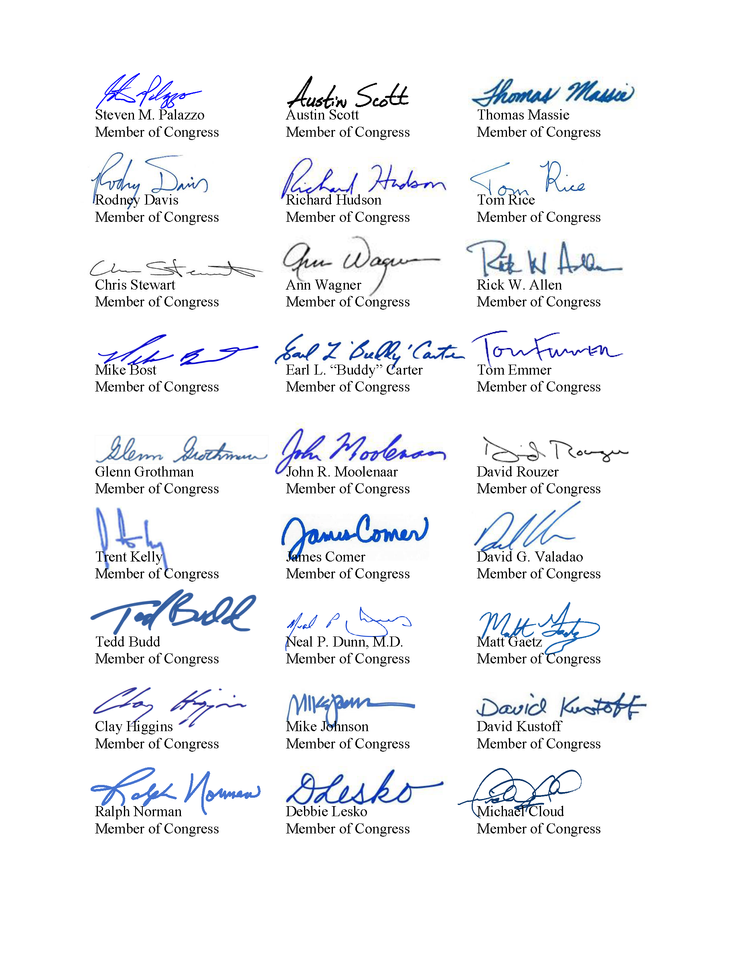 Steven M. Palazzo
Member of Congress
Austin Scott
Austin Scott
Member of Congress
Thomas Massie
Thomas Massie
Member of Congress
Rodney Davis
Member of Congress
Richard Hudson
Richard Hudson
Member of Congress
Tom Rice
Tom Rice
Member of Congress
Chris Stewart
Member of Congress
Ann Wagner
Ann Wagner
Member of Congress
Rick W Allen
Rick W. Allen
Member of Congress
Mike Bost
Member of Congress
Earl L "Buddy" Carter
Earl L. “Buddy” Carter
Member of Congress
Tom Emmer
Tom Emmer
Member of Congress
Glenn Grothman
Glenn Grothman
Member of Congress
John Moolenaar
John R. Moolenaar
Member of Congress
David Rouzer
Member of Congress
Trent Kelly
Member of Congress
James Comer
James Comer
Member of Congress
David G. Valadao
Member of Congress
Ted Budd
Tedd Budd
Member of Congress
Neal P. Dunn, M.D.
Member of Congress
Matt Gaetz
Matt Gaetz
Member of Congress
Clay Higgins
Clay Higgins
Member of Congress
Mike Johnson
Member of Congress
David Kustoff
David Kustoff
Member of Congress
Ralph Norman
Ralph Norman
Member of Congress
DLesko
Debbie Lesko
Member of Congress
Michael Cloud
Member of Congress